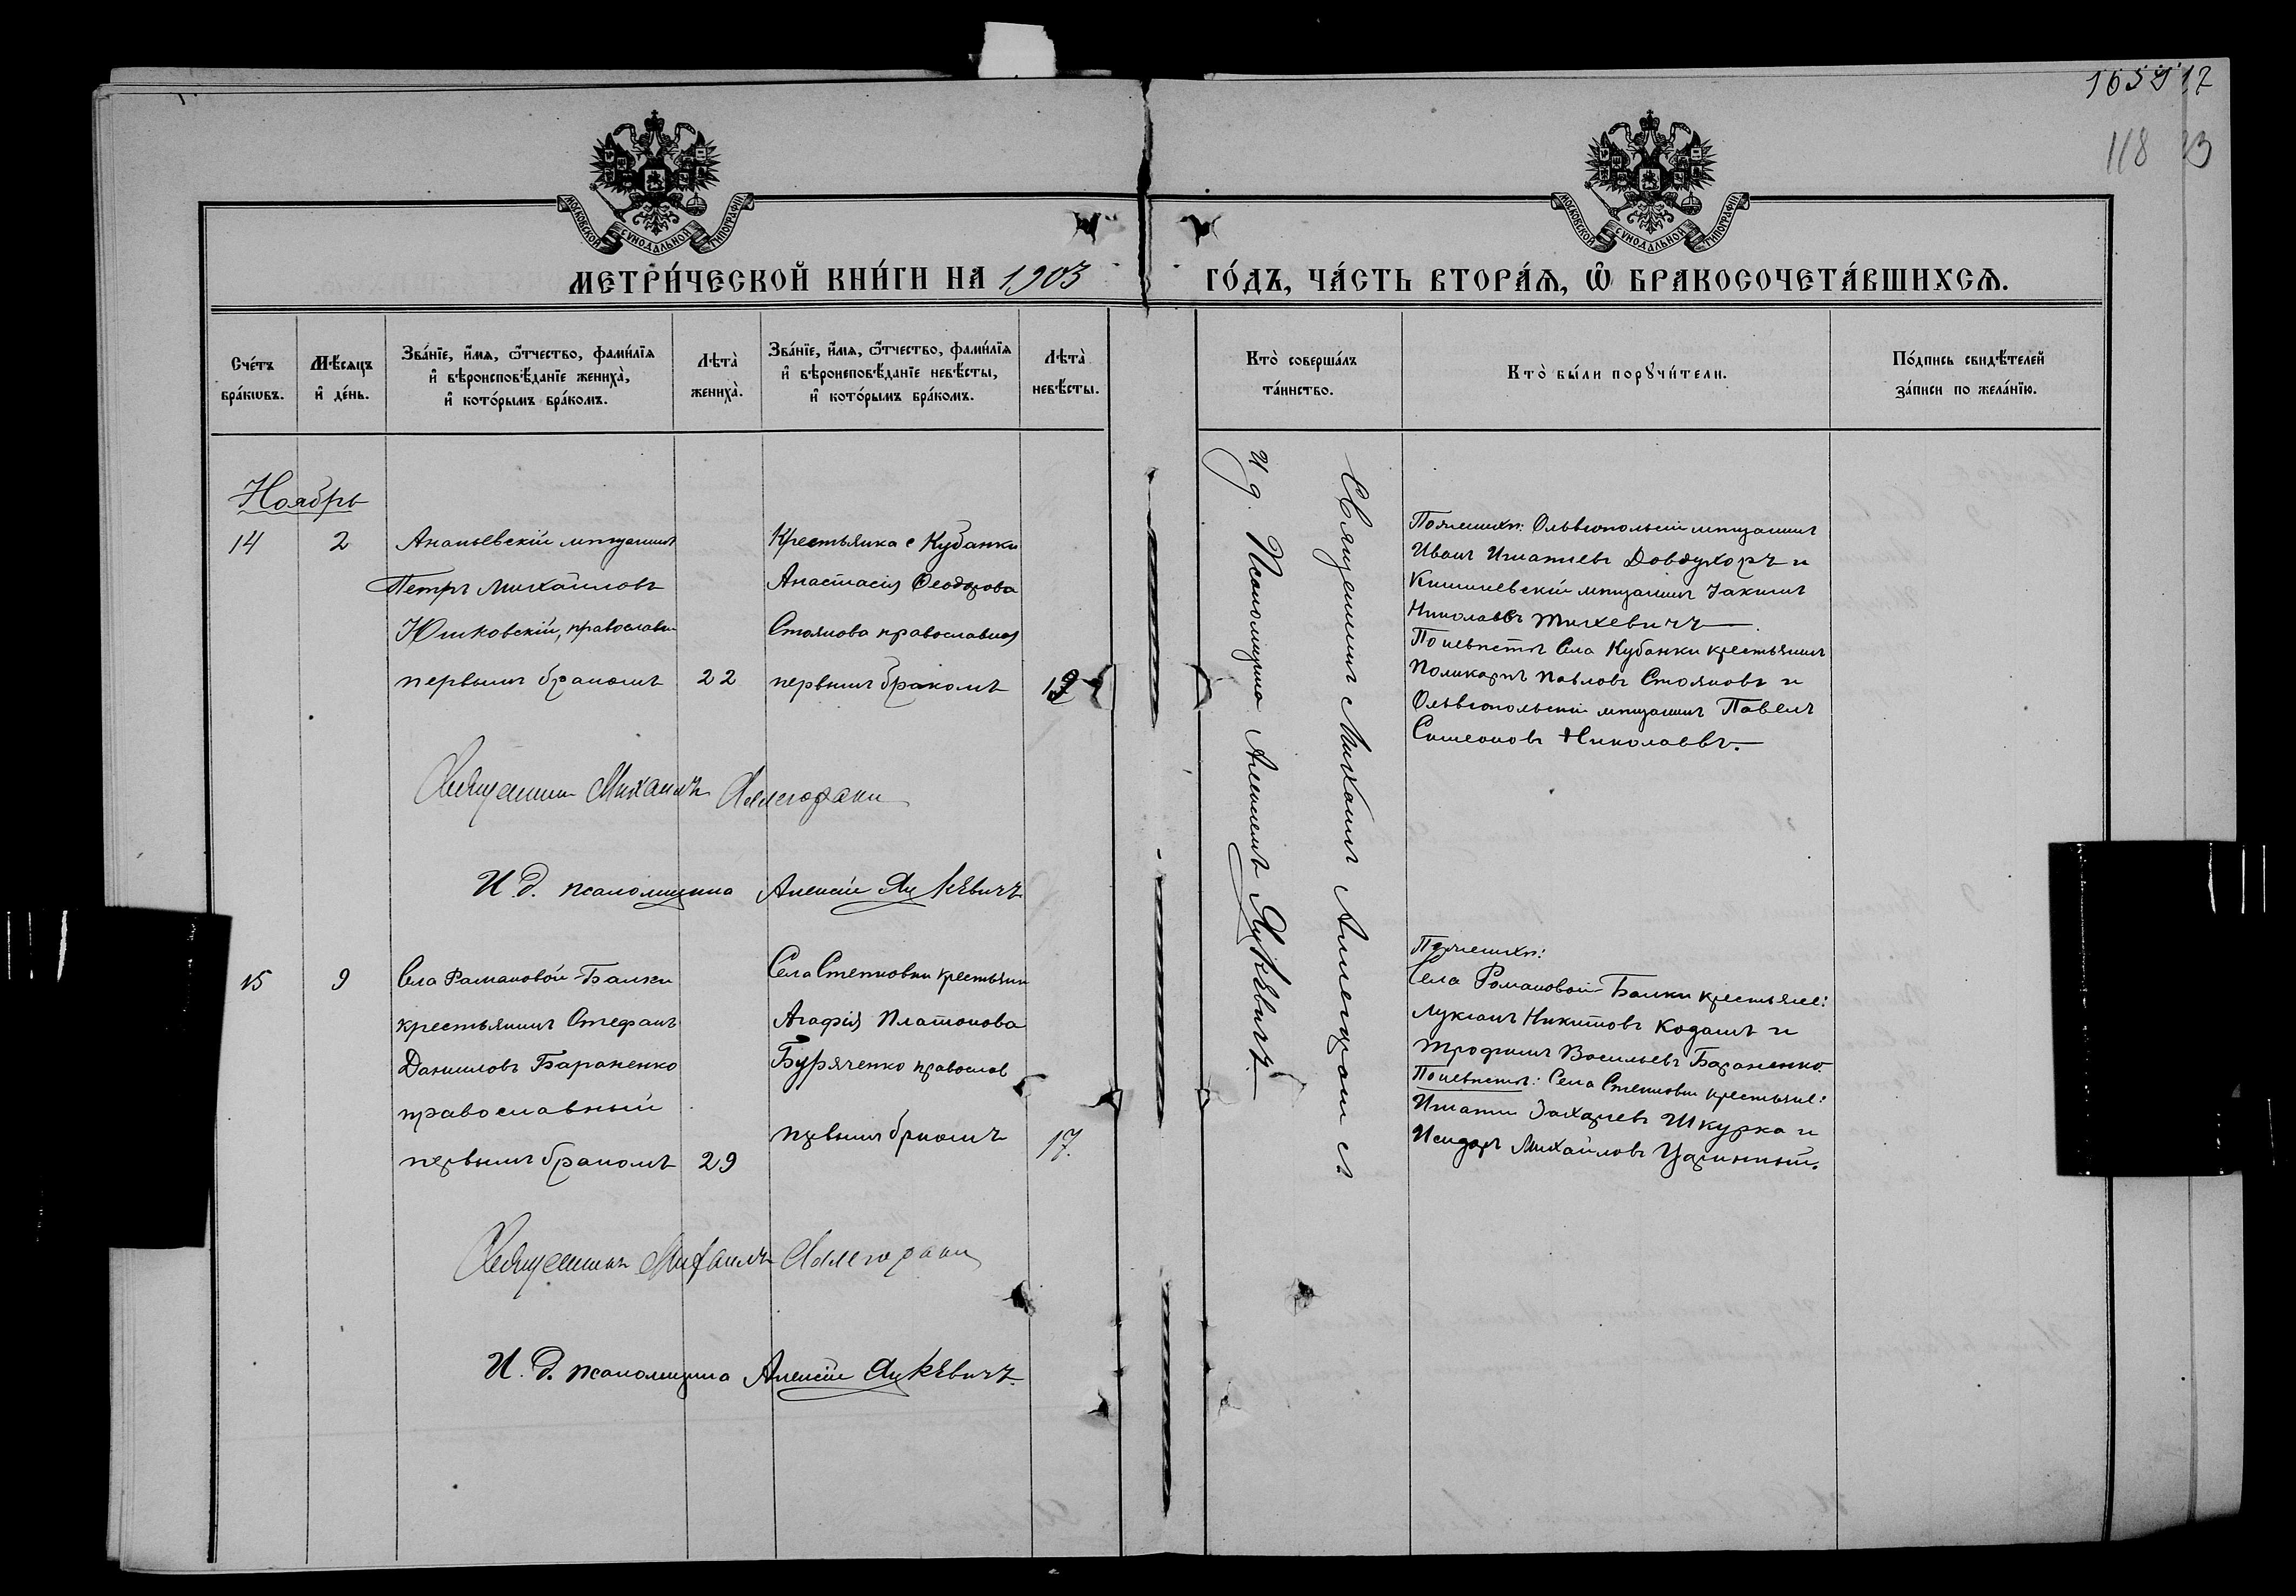 1659 12
118 23
МОСКОВСКОЙ СѴНОДАЛЬНОЙ ТИПОГРАФІИ
МОСКОВСКОЙ СѴНОДАЛЬНОЙ ТИПОГРАФІИ
МЕТРИ́ЧЕСКОЙ КНИ́ГИ НА 1903 ГО́ДЪ, ЧА́СТЬ ВТОРА́Ѧ, Ѽ БРАКОСОЧЕТА́ВШИХСѦ.
Сче́тъ бра́кωвъ.
Мѣ́сѧцъ и҆ де́нь.
Зва́нїе, и҆́мѧ, ѻ҆́тчество, фами́лїѧ
и҆ вѣроисповѣ́данїе жениха̀,
и҆ кото́рымъ бра́комъ.
Лѣта̀ жениха̀.
Зва́нїе, и҆́мѧ, ѻ҆́тчество, фами́лїѧ
и҆ вѣроисповѣ́данїе невѣ́сты,
и҆ кото́рымъ бра́комъ.
Лѣта̀ невѣ́сты.
Кто̀ соверша́лъ та́инство.
Кто̀ бы́ли порꙋчи́тели.
По́дпись свидѣ́телей за́писи по жела́нїю.
Ноябрь
14
2
Ананьевскій мѣщанинъ
Петръ Михайловъ
Юшковскій, православн
первымъ бракомъ
22
Крестьянка с Кубанки
Анастасія Ѳеодорова
Стоянова православная
первымъ бракомъ
19
Священникъ Михаилъ
И. д. псаломщика Алексій Яцкевичъ
Священникъ Михаилъ
И д. Псаломщика Алексій Яцкевичъ
По женихѣ: Ольвіопольскій мѣщанинъ
Иванъ Игнатіевъ Довдухоръ и
Кишиневскій мѣщанинъ Іакимъ
Николаевъ Михевичъ
По невѣстѣ Села Кубанки крестьянинъ
Поликарпъ Павловъ Стояновъ и
Ольвіопольскій мѣщанинъ Павелъ
Симеоновъ Николаевъ.
15
9
Села Романовой-Балки
крестьянинъ Стефанъ
Даниловъ Бараненко
православный
первымъ бракомъ
29
Села Степковки крестьянк
Агафія Платонова
Буряченко православ
первымъ бракомъ
17.
По женихѣ:
Села Романовой-Балки крестьяне:
Лукіанъ Никитовъ Кодашъ и
Трофимъ Васильевъ Бараненко
По невѣстѣ: Села Степковки крестьяне:
Игнатій Захаріевъ Шкурка и
Исидоръ Михайловъ Царинный.
Священникъ Михаилъ
И. д. псаломщика Алексій Яцкевичъ